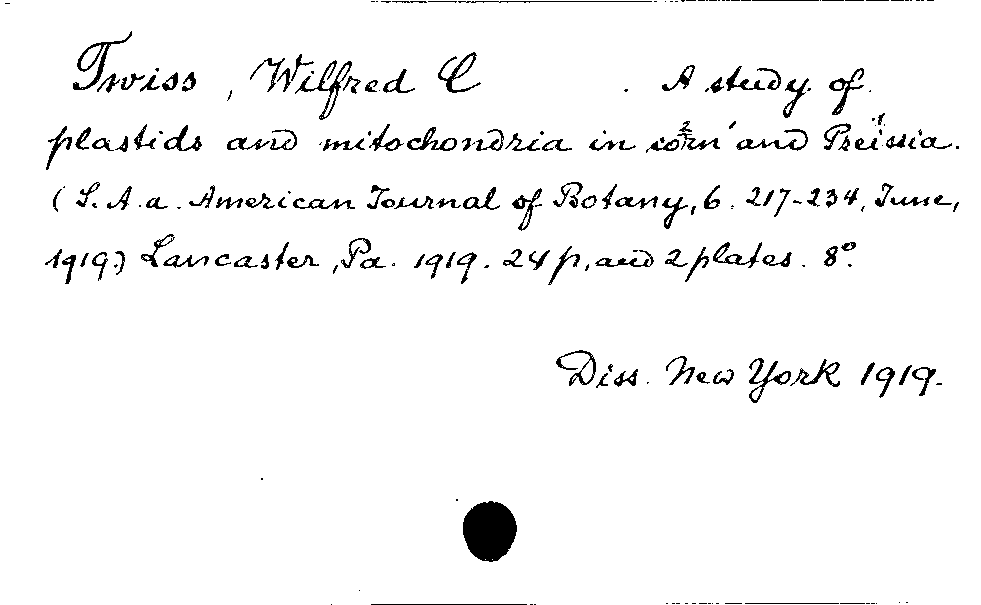 Twiss, Wilfred C. A study of
plastids and mitochondria in corn and Preissia.
(S. A. a. American Journal of Botany, 6. 217-234, June,
1919.) Lancaster, Pa. 1919. 24 p. and 2 plates. 8°.
Diss. New York 1919.